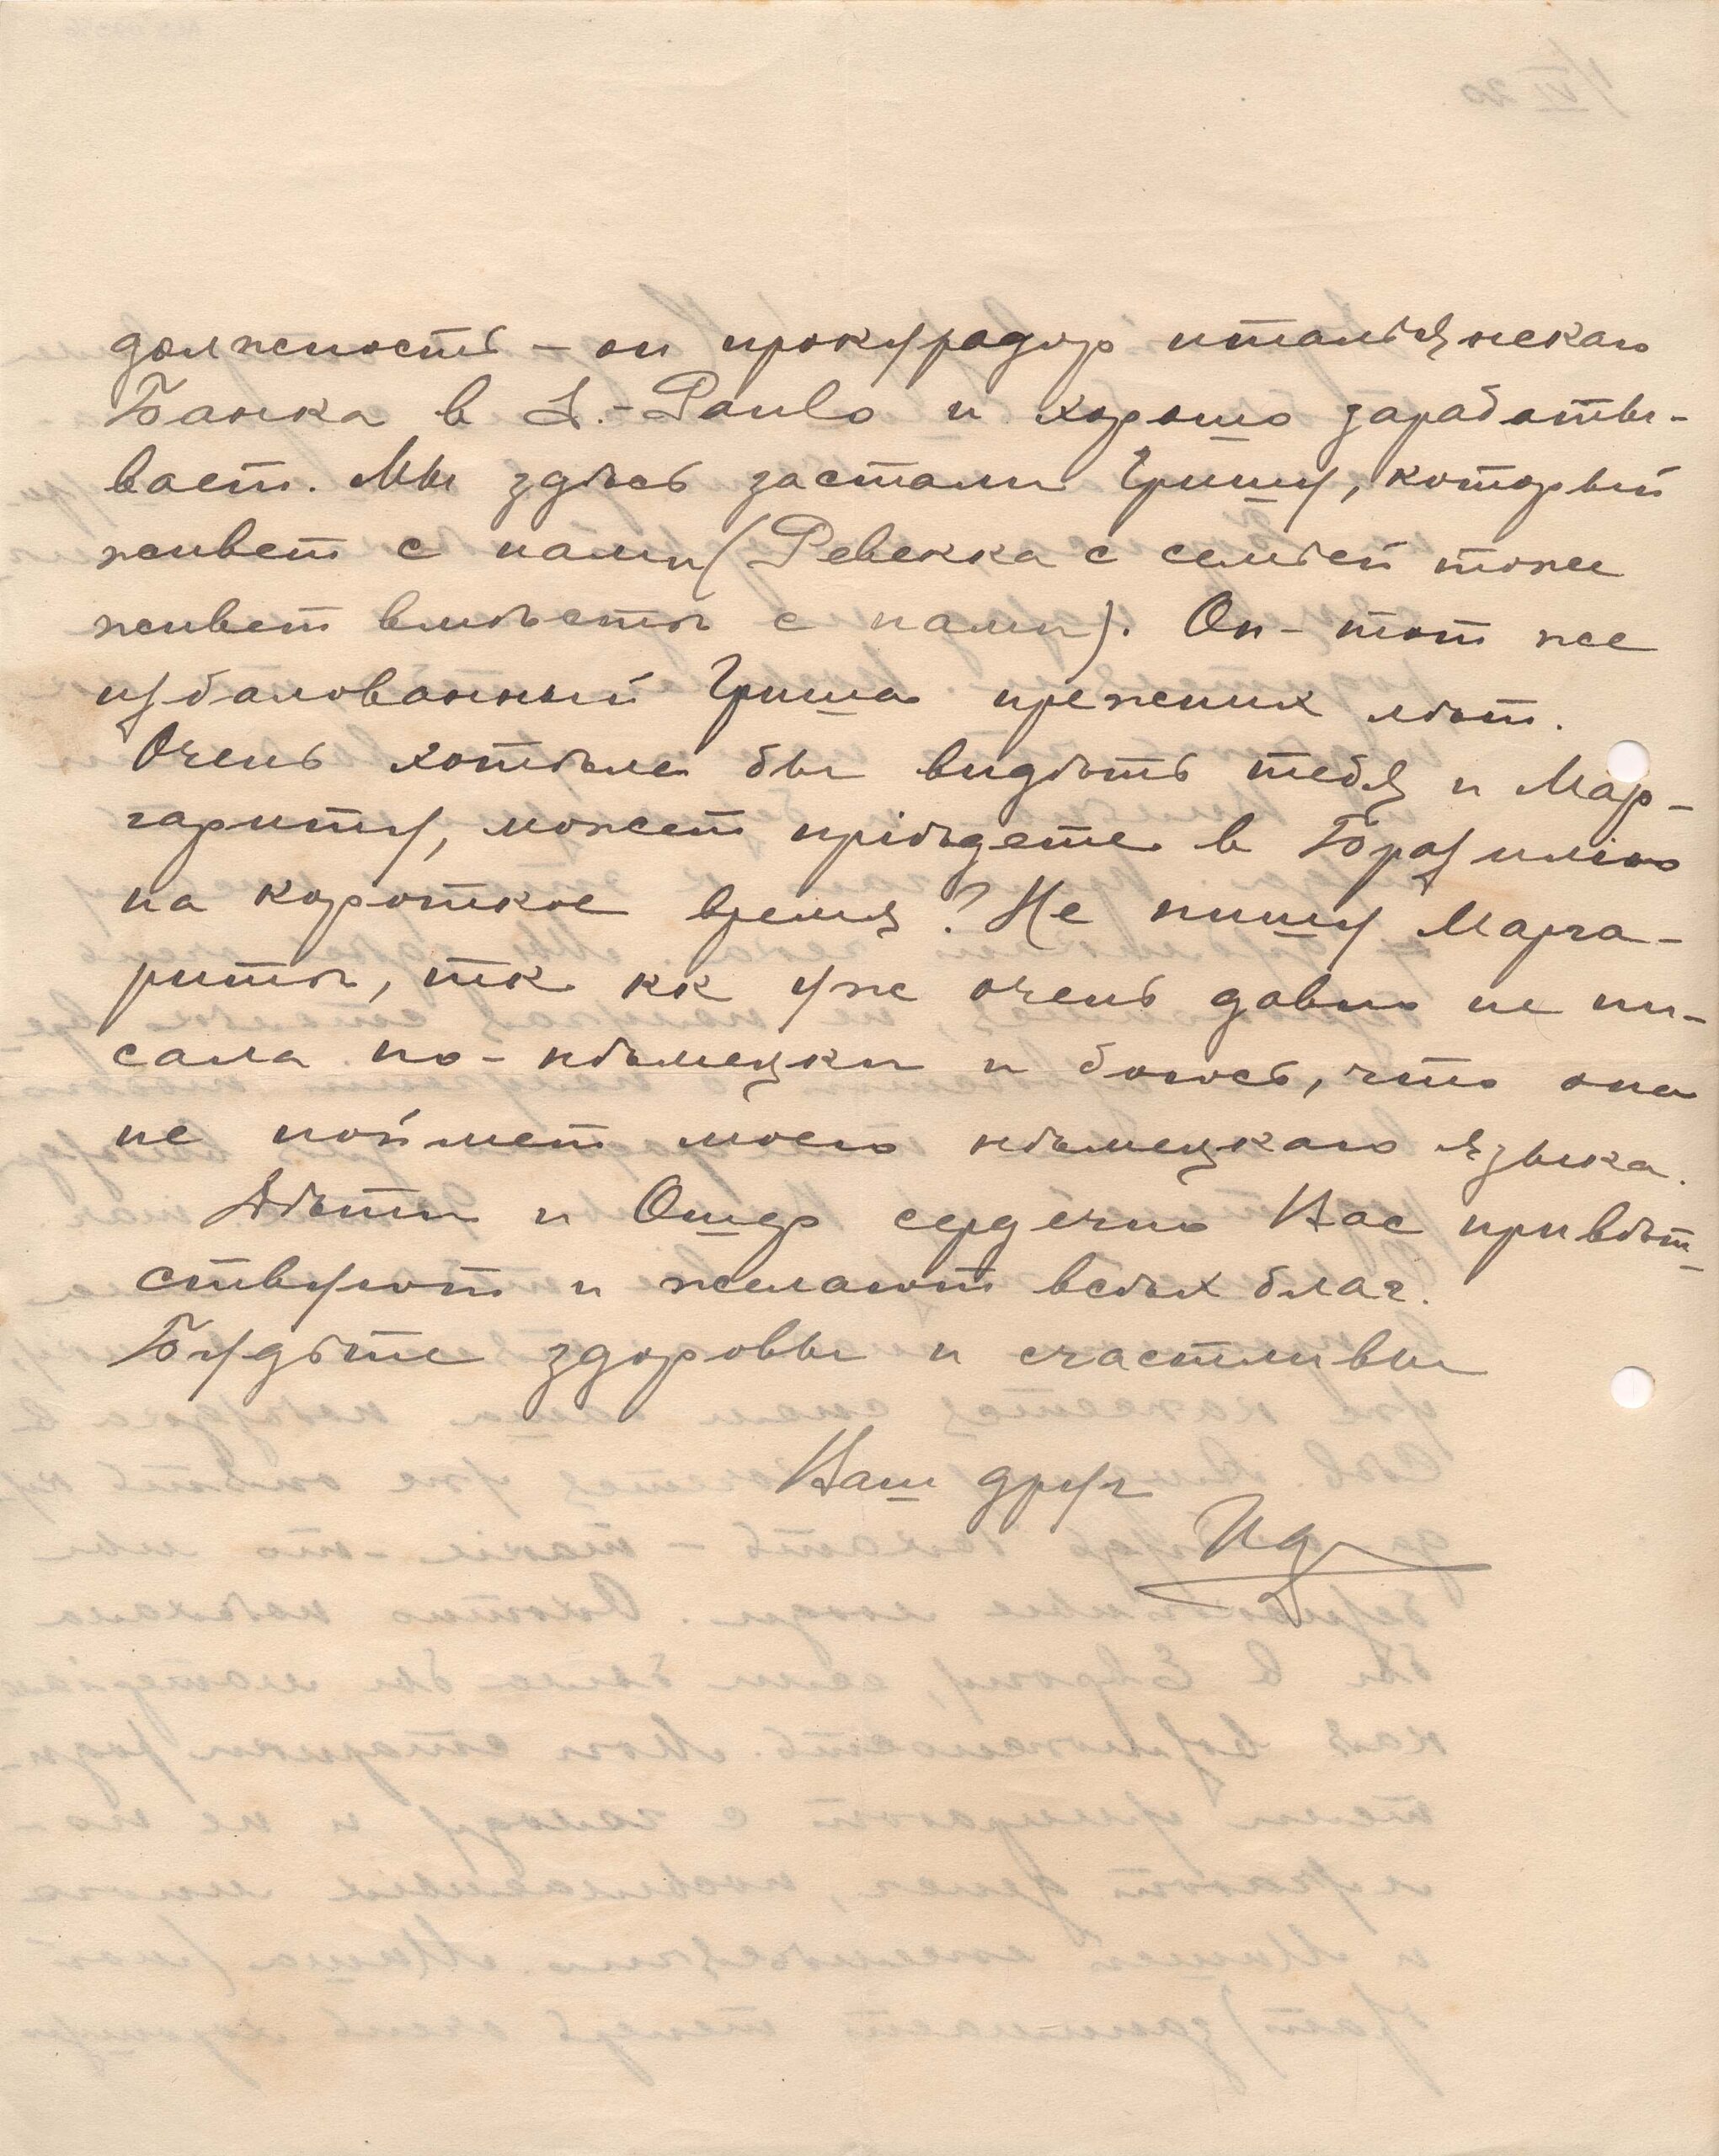 должность – он прокурадор итальянскаго
Банка в S.-Paulo и хорошо зарабаты-
вает. Мы здѣсь застали Гришу, который
живет с нами (Ревекка с семьей тоже
живет вмѣстѣ с нами). Он – тот же
избалованный Гриша прежних лѣт.
Очень хотѣла бы видѣть тебя и Мар-
гариту, может пріѣдете в Бразилію
на короткое время? Не пишу Марга-
ритѣ, тк кк уже очень давно не пи-
сала по-нѣмецки и боюсь, что она
не поймет моего нѣмецкаго языка.
Дѣти и Ошер сердечно Вас привѣт-
ствуют и желают всѣх благ.
Будьте здоровы и счастливы
Ваш друг
Ида